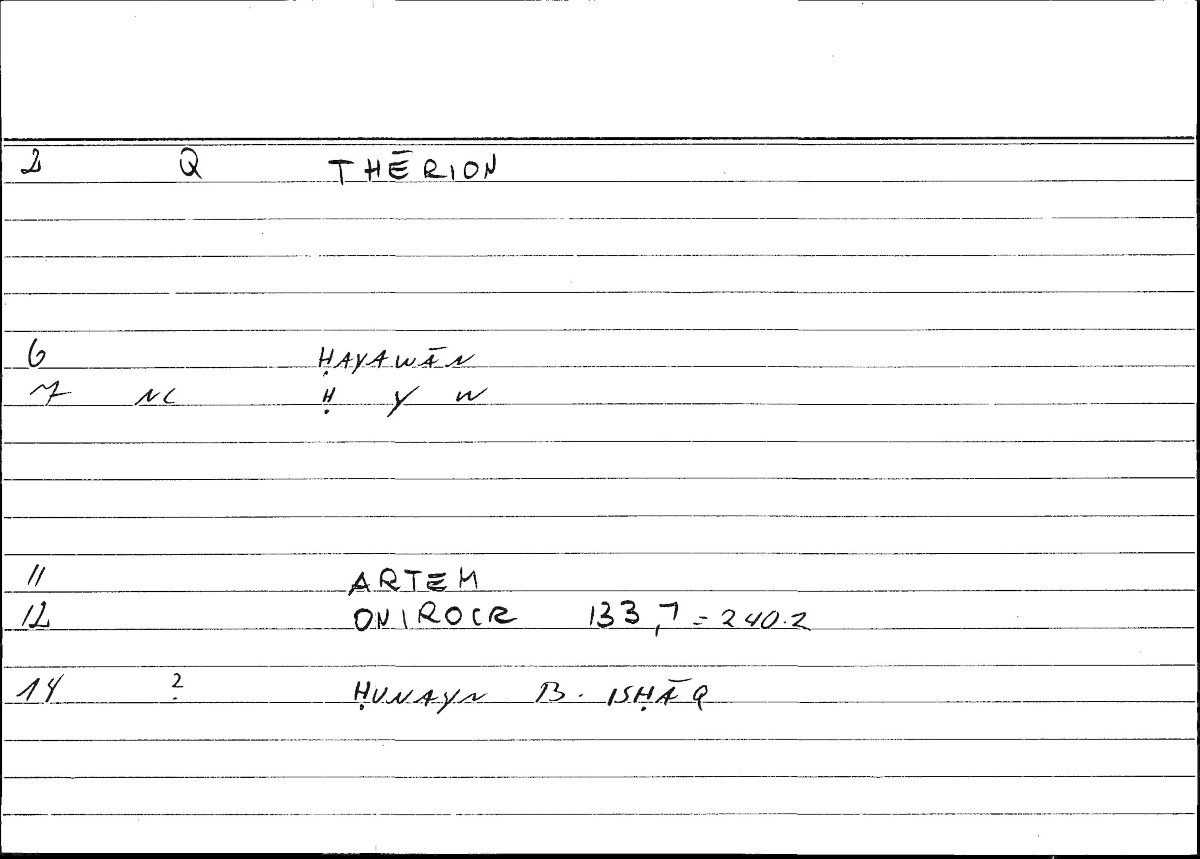 2 Q THĒRION
6 ḤAYAWĀN
7 NC Ḥ Y W
11 ARTEM
12 ONIROCR 133,7 = 240.2
14 ? ḤUNAYN B. ISḤĀQ